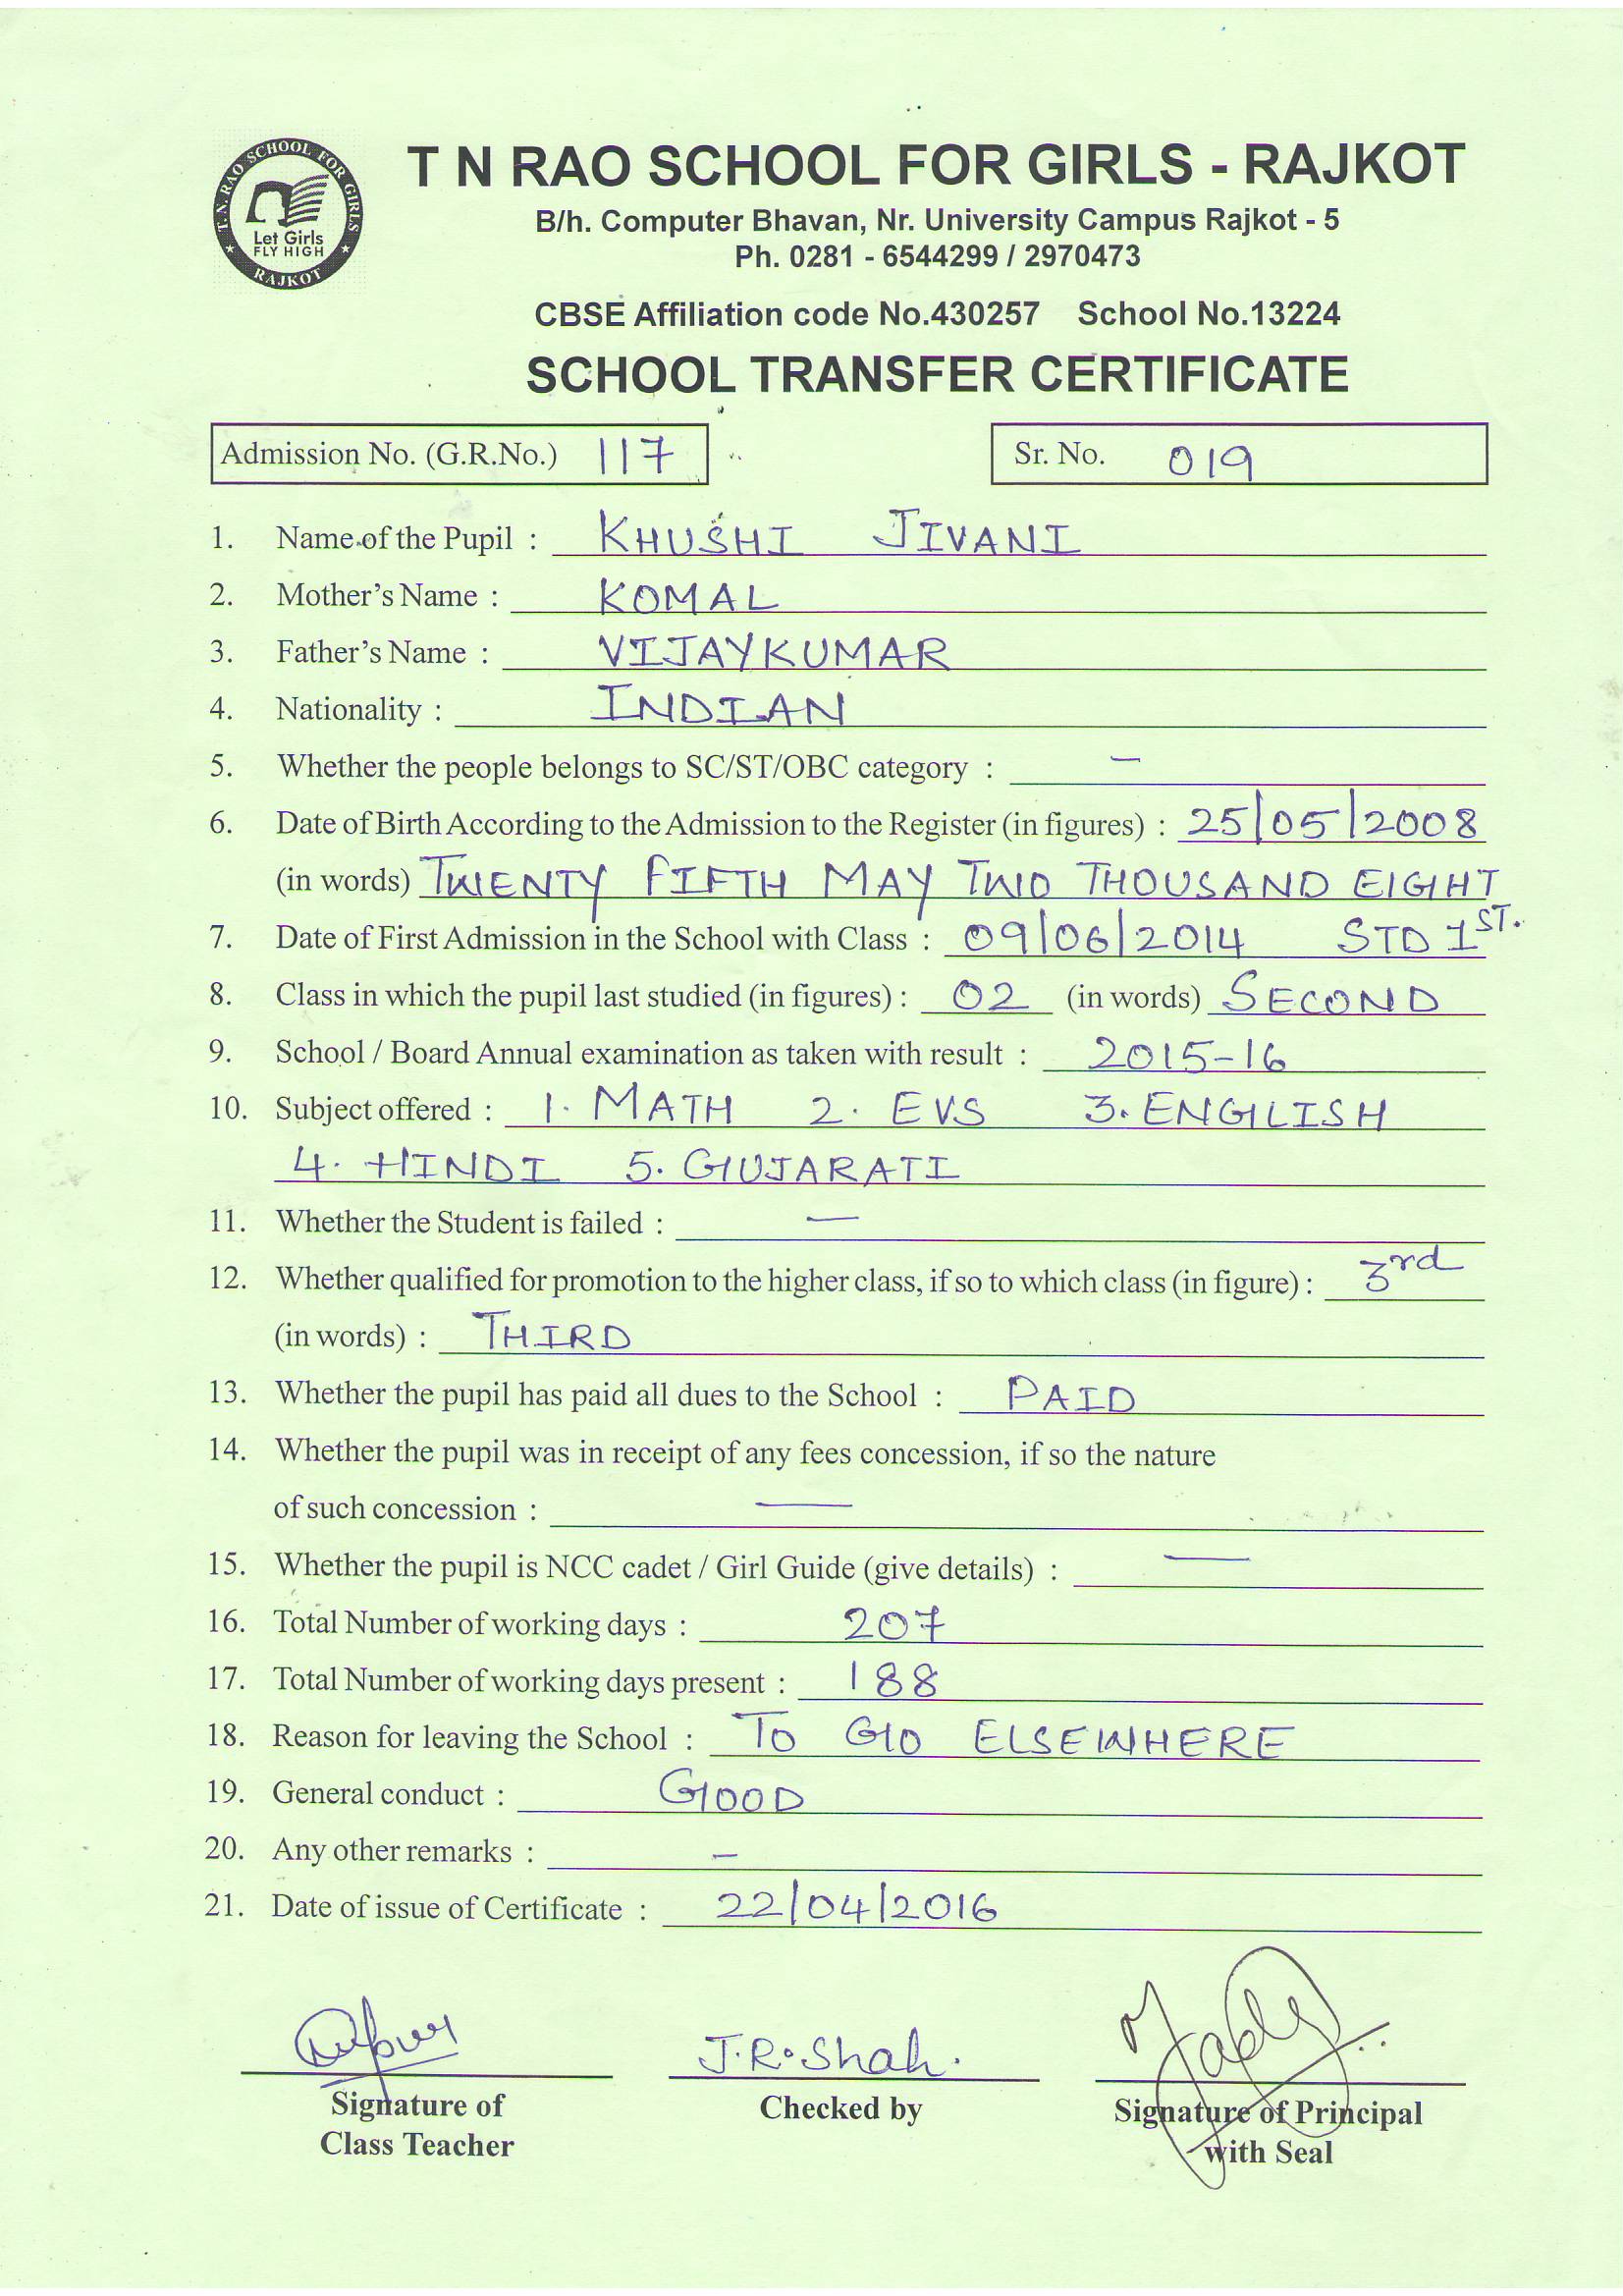 T. N. RAO SCHOOL FOR GIRLS
Let Girls
FLY HIGH
RAJKOT
T N RAO SCHOOL FOR GIRLS - RAJKOT
B/h. Computer Bhavan, Nr. University Campus Rajkot - 5
Ph. 0281 - 6544299 / 2970473
CBSE Affiliation code No.430257 School No.13224
SCHOOL TRANSFER CERTIFICATE
Admission No. (G.R.No.) 117 Sr. No. 019
1. Name of the Pupil : KHUSHI JIVANI
2. Mother's Name : KOMAL
3. Father's Name : VIJAYKUMAR
4. Nationality : INDIAN
5. Whether the people belongs to SC/ST/OBC category : —
6. Date of Birth According to the Admission to the Register (in figures) : 25/05/2008
(in words) TWENTY FIFTH MAY TWO THOUSAND EIGHT
7. Date of First Admission in the School with Class : 09/06/2014 STD 1ST.
8. Class in which the pupil last studied (in figures) : 02 (in words) SECOND
9. School / Board Annual examination as taken with result : 2015-16
10. Subject offered : 1. MATH 2. EVS 3. ENGLISH
4. HINDI 5. GUJARATI
11. Whether the Student is failed : —
12. Whether qualified for promotion to the higher class, if so to which class (in figure) : 3rd
(in words) : THIRD
13. Whether the pupil has paid all dues to the School : PAID
14. Whether the pupil was in receipt of any fees concession, if so the nature
of such concession : —
15. Whether the pupil is NCC cadet / Girl Guide (give details) : —
16. Total Number of working days : 207
17. Total Number of working days present : 188
18. Reason for leaving the School : TO GO ELSEWHERE
19. General conduct : GOOD
20. Any other remarks : —
21. Date of issue of Certificate : 22/04/2016
J.R.Shah.
Signature of Checked by Signature of Principal
Class Teacher with Seal